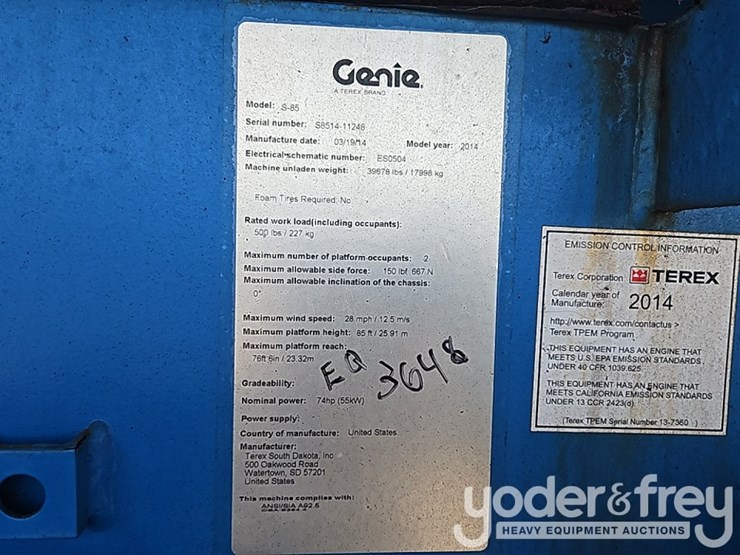 Genie.
A TEREX BRAND
Model: S-85
Serial number: S8514-11246
Manufacture date: 03/19/14 Model year: 2014
Electrical schematic number: ES0504
Machine unladen weight: 39678 lbs / 17998 kg
Foam Tires Required: No
Rated work load(including occupants):
500 lbs / 227 kg
Maximum number of platform occupants: 2
Maximum allowable side force: 150 lbf 667 N
Maximum allowable inclination of the chassis:
0°
Maximum wind speed: 28 mph / 12.5 m/s
Maximum platform height: 85 ft / 25.91 m
Maximum platform reach:
76ft 6in / 23.32m
EQ 3648
Gradeability:
Nominal power: 74hp (55kW)
Power supply:
Country of manufacture: United States
Manufacturer:
Terex South Dakota, Inc
500 Oakwood Road
Watertown, SD 57201
United States
This machine complies with:
ANSI/SIA A92.5
EMISSION CONTROL INFORMATION
Terex Corporation TEREX
Calendar year of
Manufacture: 2014
http://www.terex.com/contactus >
Terex TPEM Program
THIS EQUIPMENT HAS AN ENGINE THAT
MEETS U.S. EPA EMISSION STANDARDS
UNDER 40 CFR 1039.625.
THIS EQUIPMENT HAS AN ENGINE THAT
MEETS CALIFORNIA EMISSION STANDARDS
UNDER 13 CCR 2423(d).
(Terex TPEM Serial Number 13-7360 )
yoder&frey
HEAVY EQUIPMENT AUCTIONS